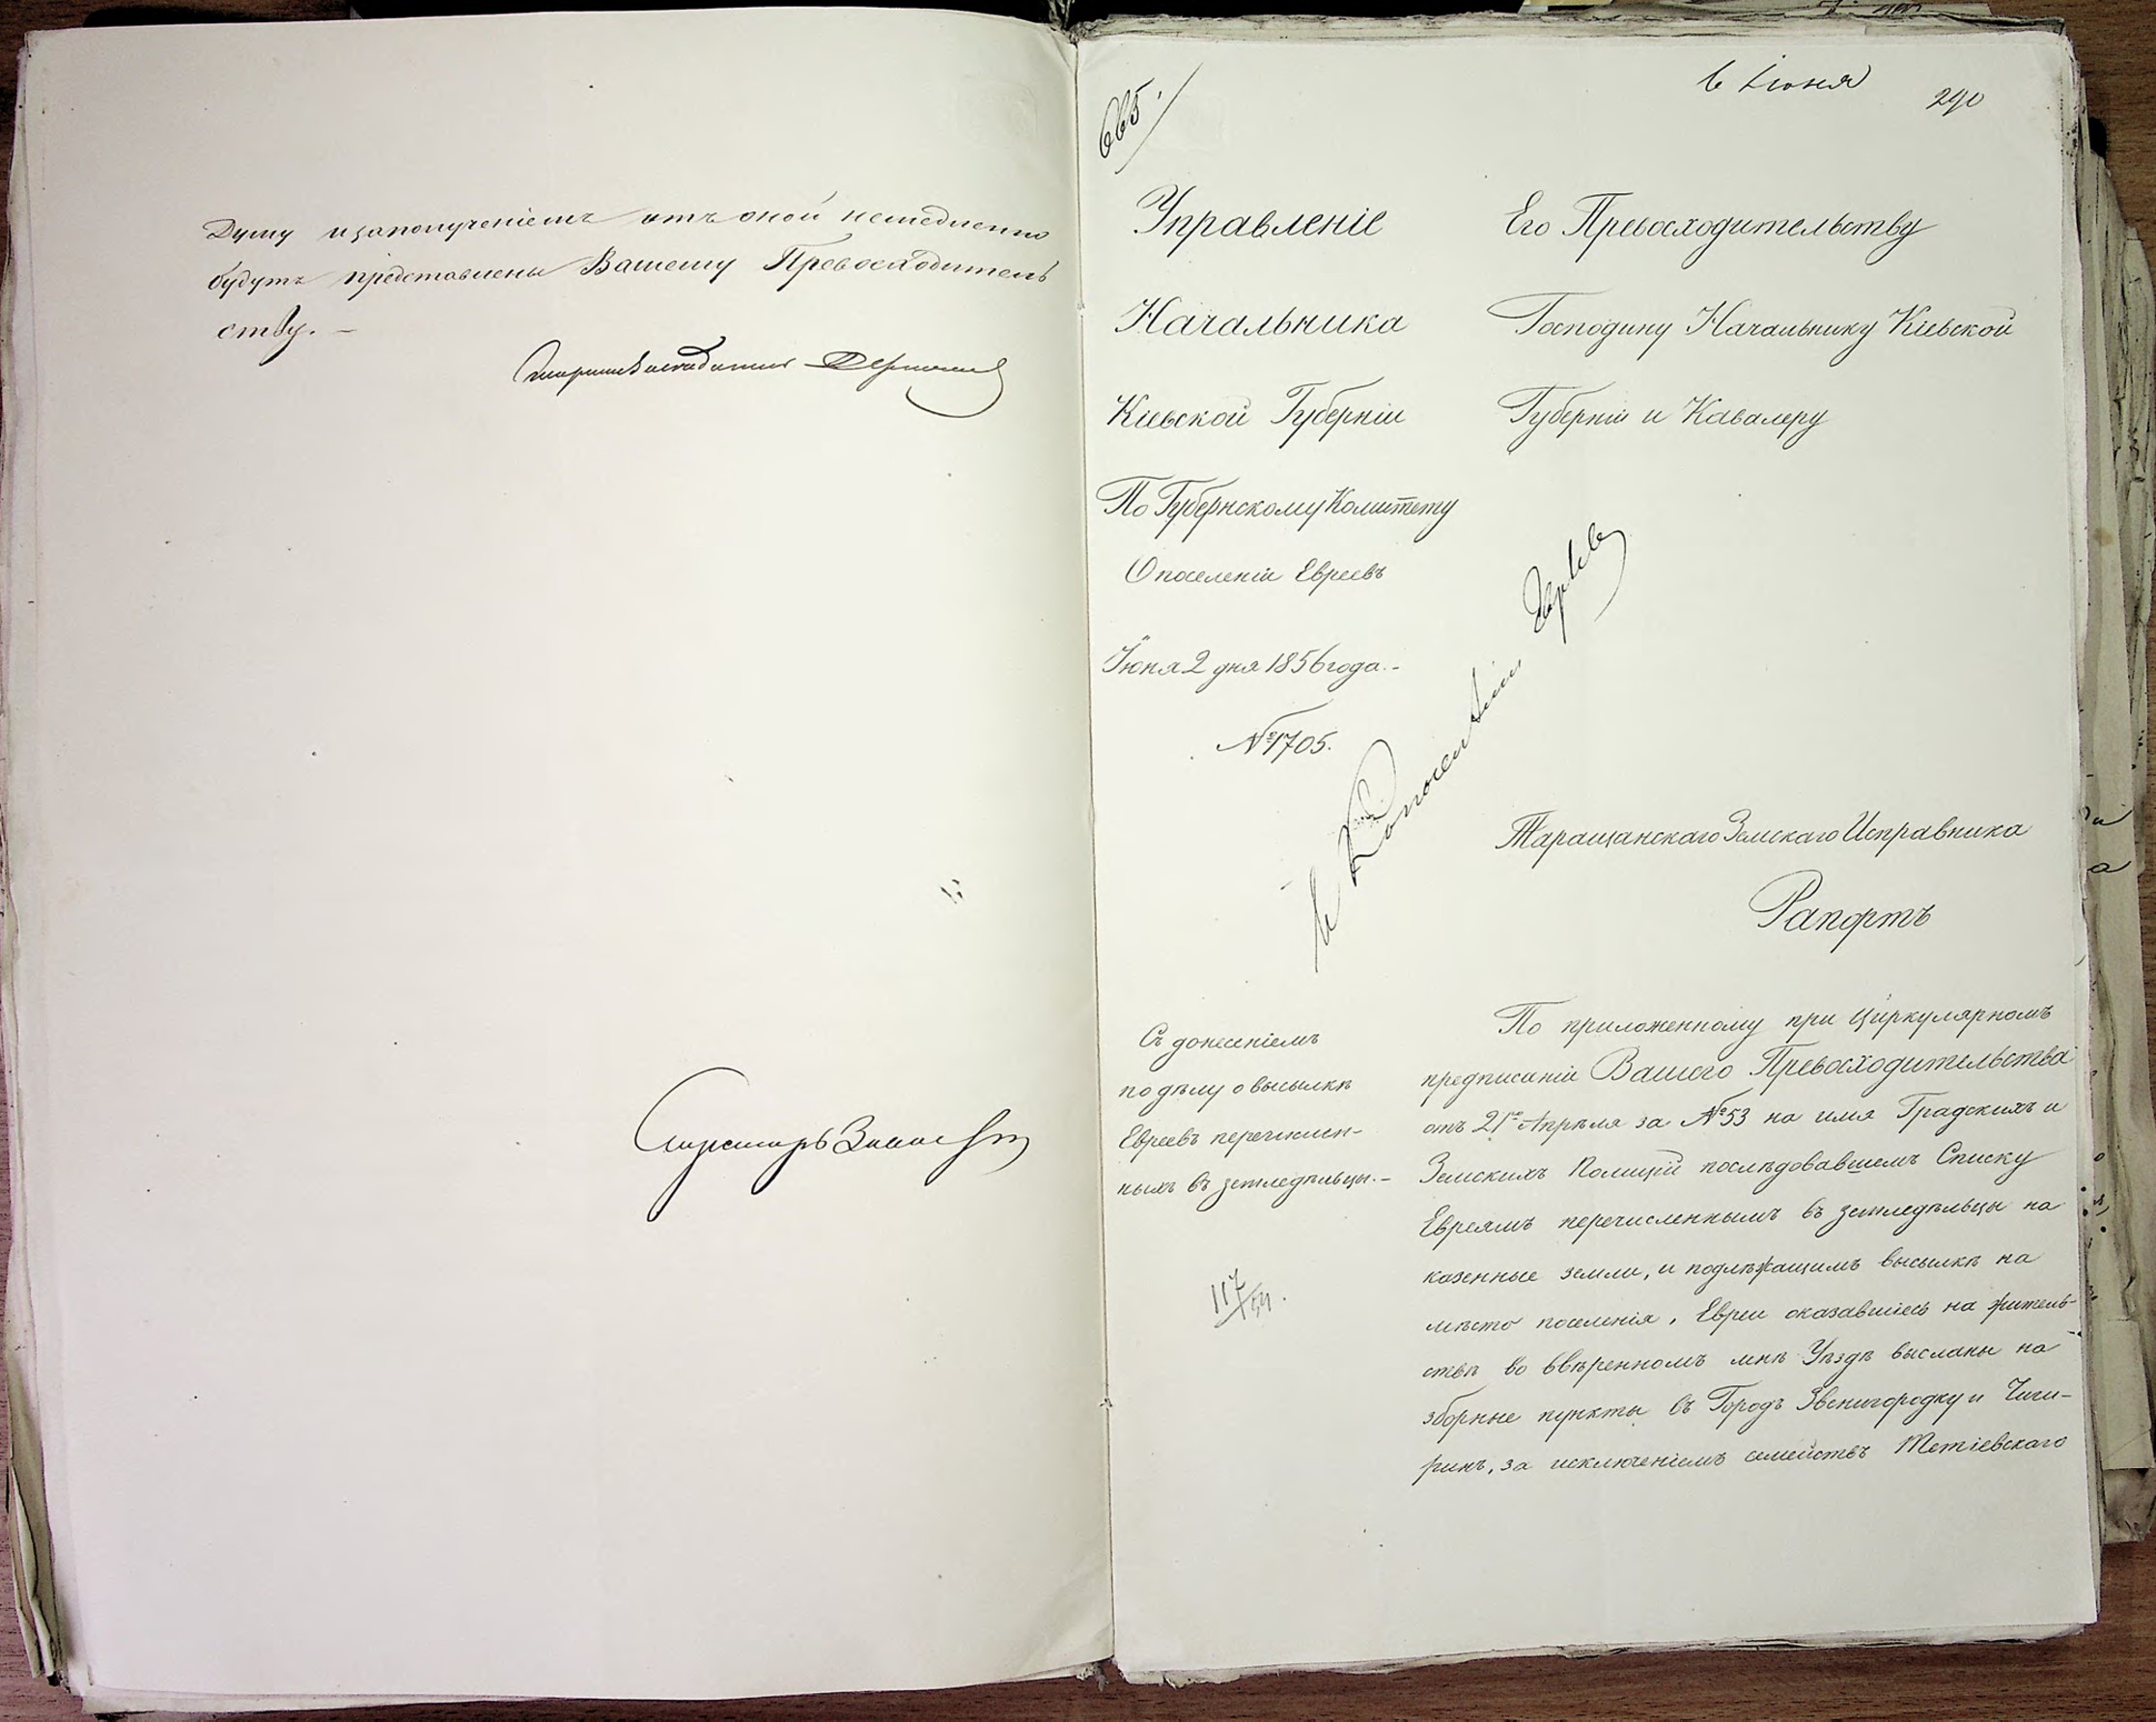 Думу и за получениемъ отъ оной немедленно
будутъ представлены Вашему Превосходитель
ству. —
665.
6 Июня
290
Управленіе
Начальника
Кіевской Губерніи
По Губернскому Комитету
О поселеніи Евреевъ
Іюня 2 дня 1856 года. -
№ 1705.
Его Превосходительству
Господину Начальнику Кіевской
Губерніи и Кавалеру
Евреев
Таращанскаго Земскаго Исправника
Рапортъ
Съ донесеніемъ
по дѣлу о высылкѣ
Евреевъ перечислен-
ныхъ въ земледѣльцы. -
117/54.
По приложенному при Циркулярномъ
предписаніи Вашего Превосходительства
отъ 21го Апрѣля за № 53 на имя Градскихъ и
Земскихъ Полицій послѣдовавшемъ Списку
Евреямъ перечисленнымъ въ земледѣльцы на
казенные земли, и подлѣжащимъ высылкѣ на
мѣсто поселенія, Евреи оказавшіесь на житель-
ствѣ во ввѣренномъ мнѣ Уѣздѣ высланы на
зборные пункты въ Городъ Звенигородку и Чиги-
ринъ, за исключеніемъ семействъ Тетіевскаго